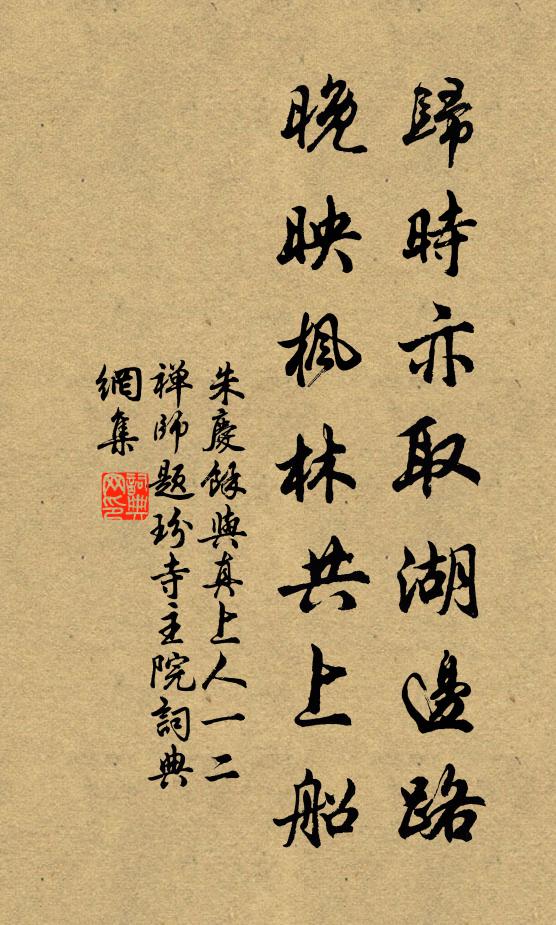 歸時亦取湖邊路
晚映楓林共上船
朱慶餘與真上人一二
禅師題玢寺主院詞典
網集
詞典網印